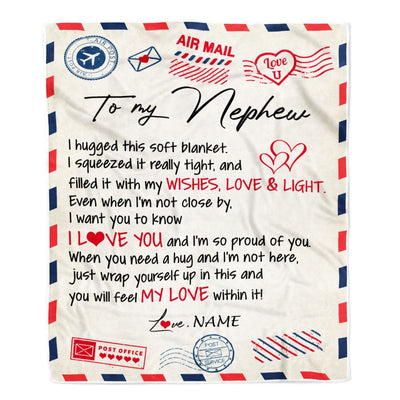 AIR MAIL
Love
U
To my Nephew
I hugged this soft blanket.
I squeezed it really tight, and
filled it with my WISHES, LOVE & LIGHT.
Even when I'm not close by,
I want you to know
I L❤VE YOU and I'm so proud of you.
When you need a hug and I'm not here,
just wrap yourself up in this and
you will feel MY LOVE within it!
Love, NAME
POST OFFICE
POST
SERVICE